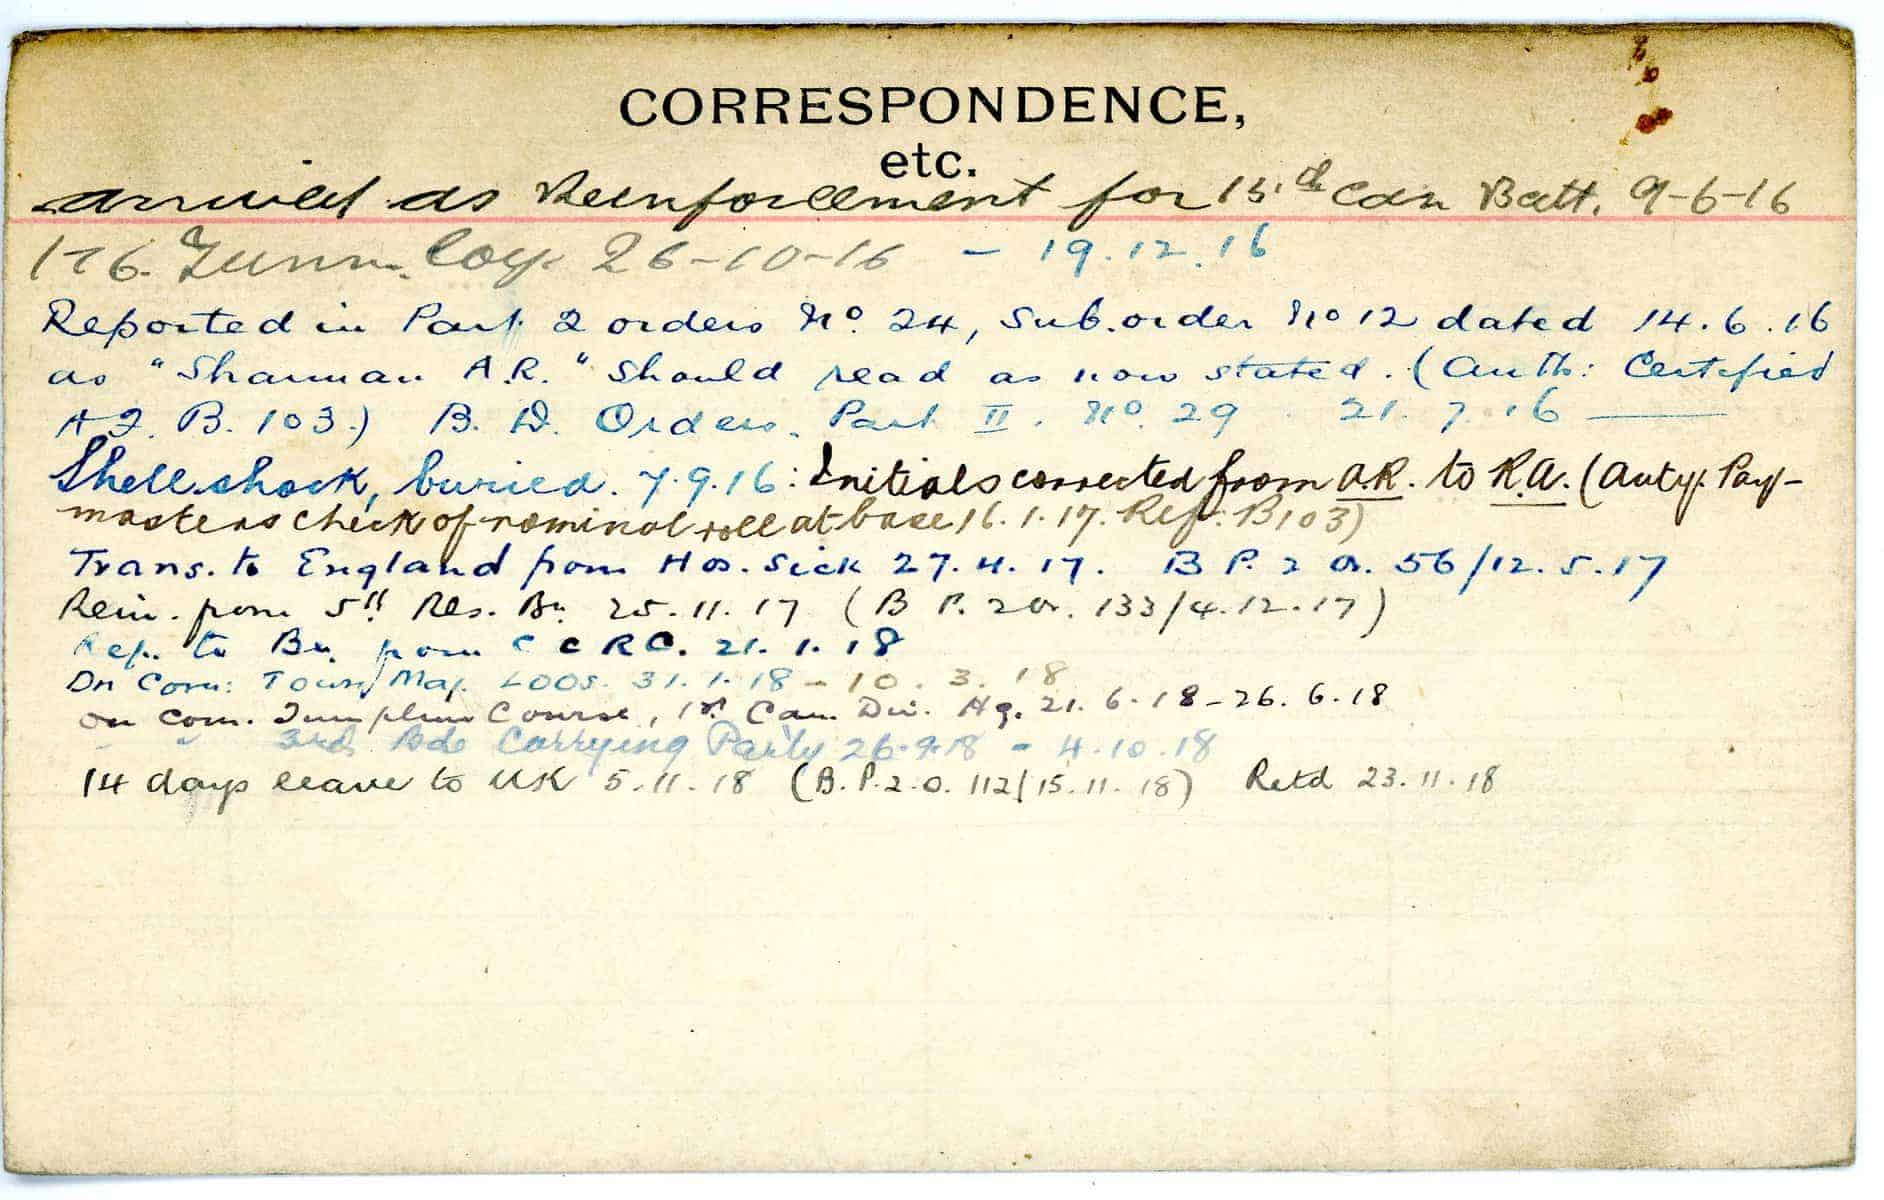 CORRESPONDENCE,
etc.
arrived as Reinforcement for 15th Cdn Batt. 9-6-16
176. Tunn. Coy. 26-10-16 - 19.12.16
Reported in Part 2 orders No. 24, Sub. order No 12 dated 14.6.16
as "Sharman A.R." Should read as now stated. (Auth: Certified
A.F. B. 103.) B. D. Orders. Part II. No. 29 21.7.16
Shell shock, buried. 7.9.16: Initials corrected from A.R. to R.A. (Auty: Pay-
masters check of nominal roll at base 16.1.17. Ref: B103)
Trans. to England from Hos. Sick 27.4.17. B P. 2 O. 56/12.5.17
Rein. from 5th Res. Bn. 25.11.17 (B P. 2 O. 133/4.12.17)
Rep. to Bn. from C C R C. 21.1.18
On Com: Town Maj. LOOS. 31.1.18 - 10.3.18
on Com. Course, 1st Can. Div. Hq. 21.6.18-26.6.18
" " 3rd Bde Carrying Party 26.9.18 - 4.10.18
14 days leave to UK 5.11.18 (B.P.2.O. 112/15.11.18) Retd 23.11.18